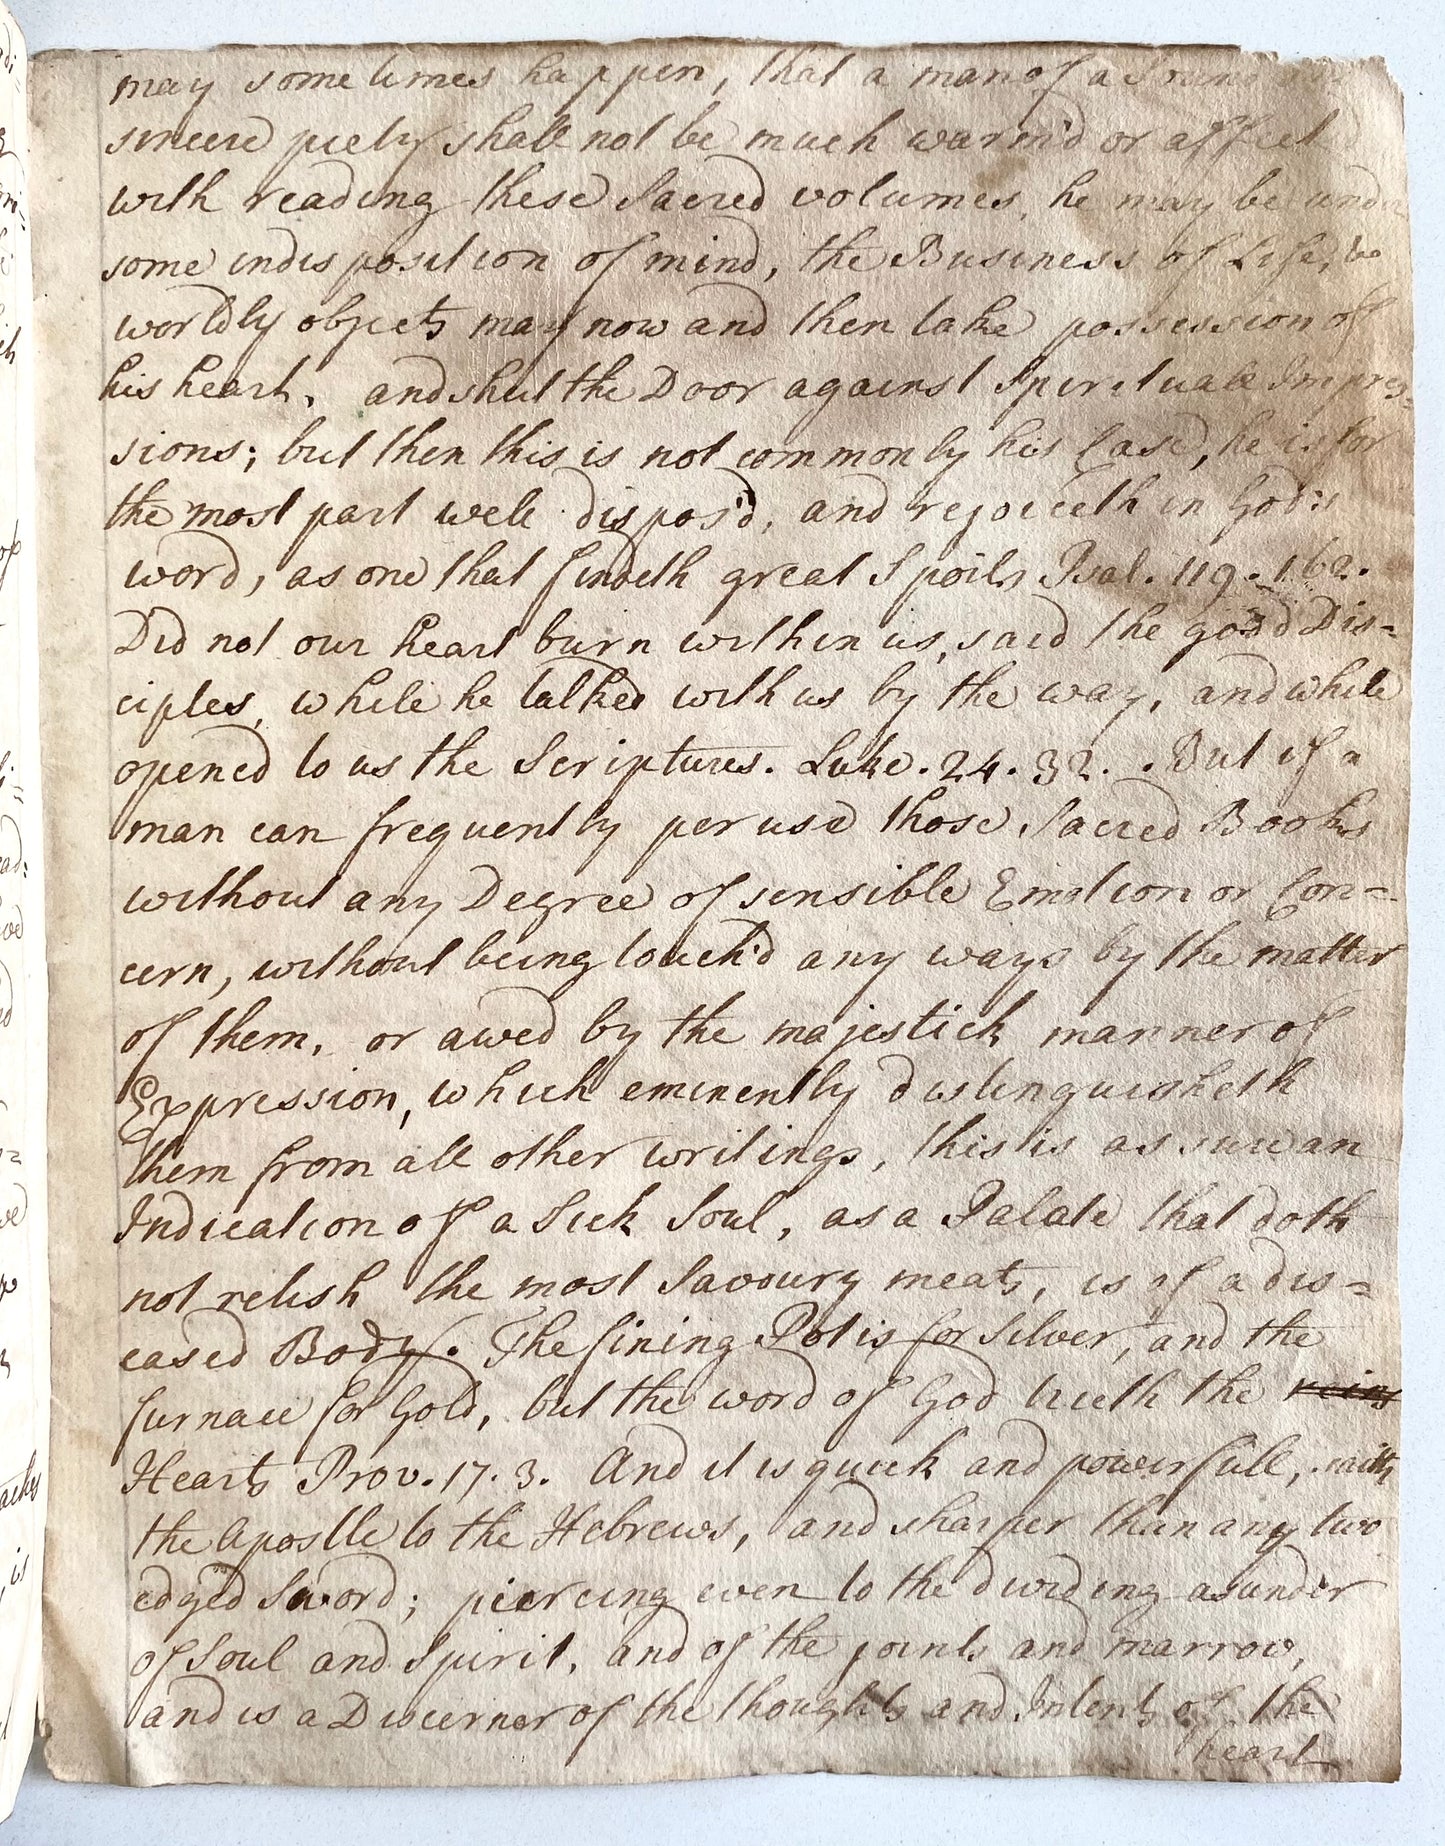 may sometimes happen, that a man of a Sound
sincere piety shall not be much warm'd or affect
with reading these Sacred volumes, he may be under
some indisposition of mind, the Business of Life, or
worldly objects may now and then take possession of
his heart, and shut the Door against Spirituall Impres-
sions; but then this is not commonly his Case, he is for
the most part well dispos'd, and rejoiceth in God's
word, as one that findeth great Spoils Psal. 119. 162.
Did not our heart burn within us, said the good Dis=
ciples, while he talked with us by the way, and while
opened to us the Scriptures. Luke. 24. 32. . But if a
man can frequently peruse those Sacred Books
without any Degree of sensible Emotion or Con=
cern, without being touch'd any ways by the matter
of them, or awed by the majestick manner of
Expression, which eminently distinguisheth
them from all other writings, this is as sure an
Indication of a Sick Soul, as a Palate that doth
not relish the most Savoury meats, is of a dis=
eased Body. The fining Pot is for Silver, and the
furnace for Gold, but the word of God trieth the reins
Hearts Prov. 17. 3. And it is quick and powerfull, saith
the Apostle to the Hebrews, and sharper than any two
edged Sword; piercing even to the dividing asunder
of Soul and Spirit, and of the joints and marrow,
and is a Discerner of the thoughts and Intents of the
heart